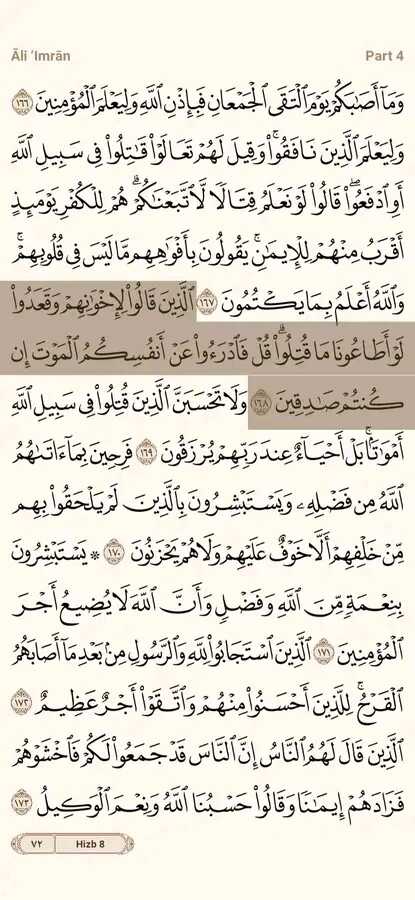 Āli ‘Imrān Part 4
وَمَآ أَصَٰبَكُمۡ يَوۡمَ ٱلۡتَقَى ٱلۡجَمۡعَانِ فَبِإِذۡنِ ٱللَّهِ وَلِيَعۡلَمَ ٱلۡمُؤۡمِنِينَ ١٦٦
وَلِيَعۡلَمَ ٱلَّذِينَ نَافَقُواْۚ وَقِيلَ لَهُمۡ تَعَالَوۡاْ قَٰتِلُواْ فِي سَبِيلِ ٱللَّهِ
أَوِ ٱدۡفَعُواْۖ قَالُواْ لَوۡ نَعۡلَمُ قِتَالٗا لَّٱتَّبَعۡنَٰكُمۡۗ هُمۡ لِلۡكُفۡرِ يَوۡمَئِذٍ
أَقۡرَبُ مِنۡهُمۡ لِلۡإِيمَٰنِۚ يَقُولُونَ بِأَفۡوَٰهِهِم مَّا لَيۡسَ فِي قُلُوبِهِمۡۚ
وَٱللَّهُ أَعۡلَمُ بِمَا يَكۡتُمُونَ ١٦٧ ٱلَّذِينَ قَالُواْ لِإِخۡوَٰنِهِمۡ وَقَعَدُواْ
لَوۡ أَطَاعُونَا مَا قُتِلُواْۗ قُلۡ فَٱدۡرَءُواْ عَنۡ أَنفُسِكُمُ ٱلۡمَوۡتَ إِن
كُنتُمۡ صَٰدِقِينَ ١٦٨ وَلَا تَحۡسَبَنَّ ٱلَّذِينَ قُتِلُواْ فِي سَبِيلِ ٱللَّهِ
أَمۡوَٰتَۢاۚ بَلۡ أَحۡيَآءٌ عِندَ رَبِّهِمۡ يُرۡزَقُونَ ١٦٩ فَرِحِينَ بِمَآ ءَاتَىٰهُمُ
ٱللَّهُ مِن فَضۡلِهِۦ وَيَسۡتَبۡشِرُونَ بِٱلَّذِينَ لَمۡ يَلۡحَقُواْ بِهِم
مِّنۡ خَلۡفِهِمۡ أَلَّا خَوۡفٌ عَلَيۡهِمۡ وَلَا هُمۡ يَحۡزَنُونَ ١٧٠ ۞ يَسۡتَبۡشِرُونَ
بِنِعۡمَةٖ مِّنَ ٱللَّهِ وَفَضۡلٖ وَأَنَّ ٱللَّهَ لَا يُضِيعُ أَجۡرَ
ٱلۡمُؤۡمِنِينَ ١٧١ ٱلَّذِينَ ٱسۡتَجَابُواْ لِلَّهِ وَٱلرَّسُولِ مِنۢ بَعۡدِ مَآ أَصَابَهُمُ
ٱلۡقَرۡحُۚ لِلَّذِينَ أَحۡسَنُواْ مِنۡهُمۡ وَٱتَّقَوۡاْ أَجۡرٌ عَظِيمٌ ١٧٢
ٱلَّذِينَ قَالَ لَهُمُ ٱلنَّاسُ إِنَّ ٱلنَّاسَ قَدۡ جَمَعُواْ لَكُمۡ فَٱخۡشَوۡهُمۡ
فَزَادَهُمۡ إِيمَٰنٗا وَقَالُواْ حَسۡبُنَا ٱللَّهُ وَنِعۡمَ ٱلۡوَكِيلُ ١٧٣
٧٢ Hizb 8